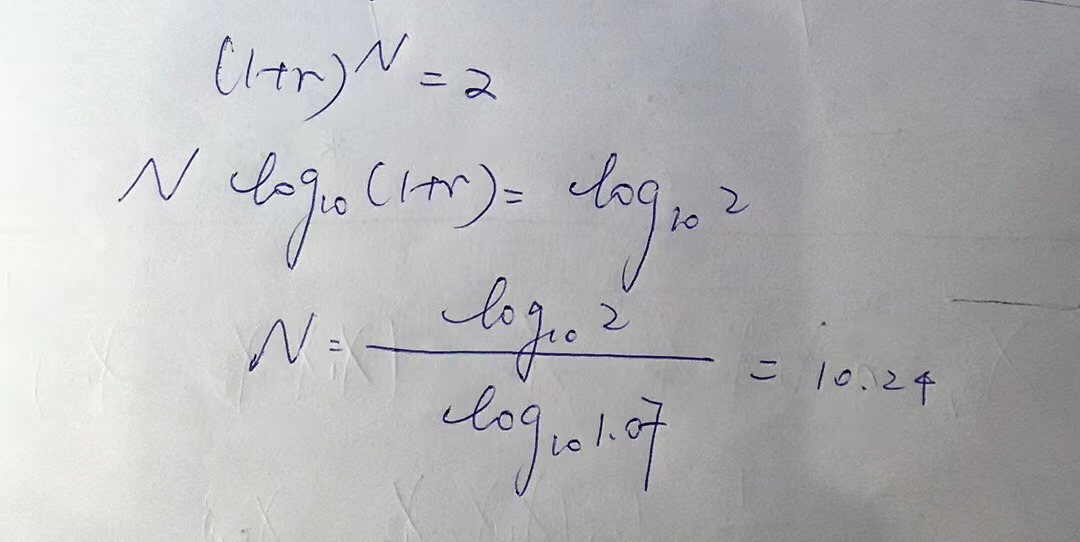 (1+r)^N = 2
N log₁₀(1+r) = log₁₀ 2
N = log₁₀ 2 / log₁₀ 1.07 = 10.24